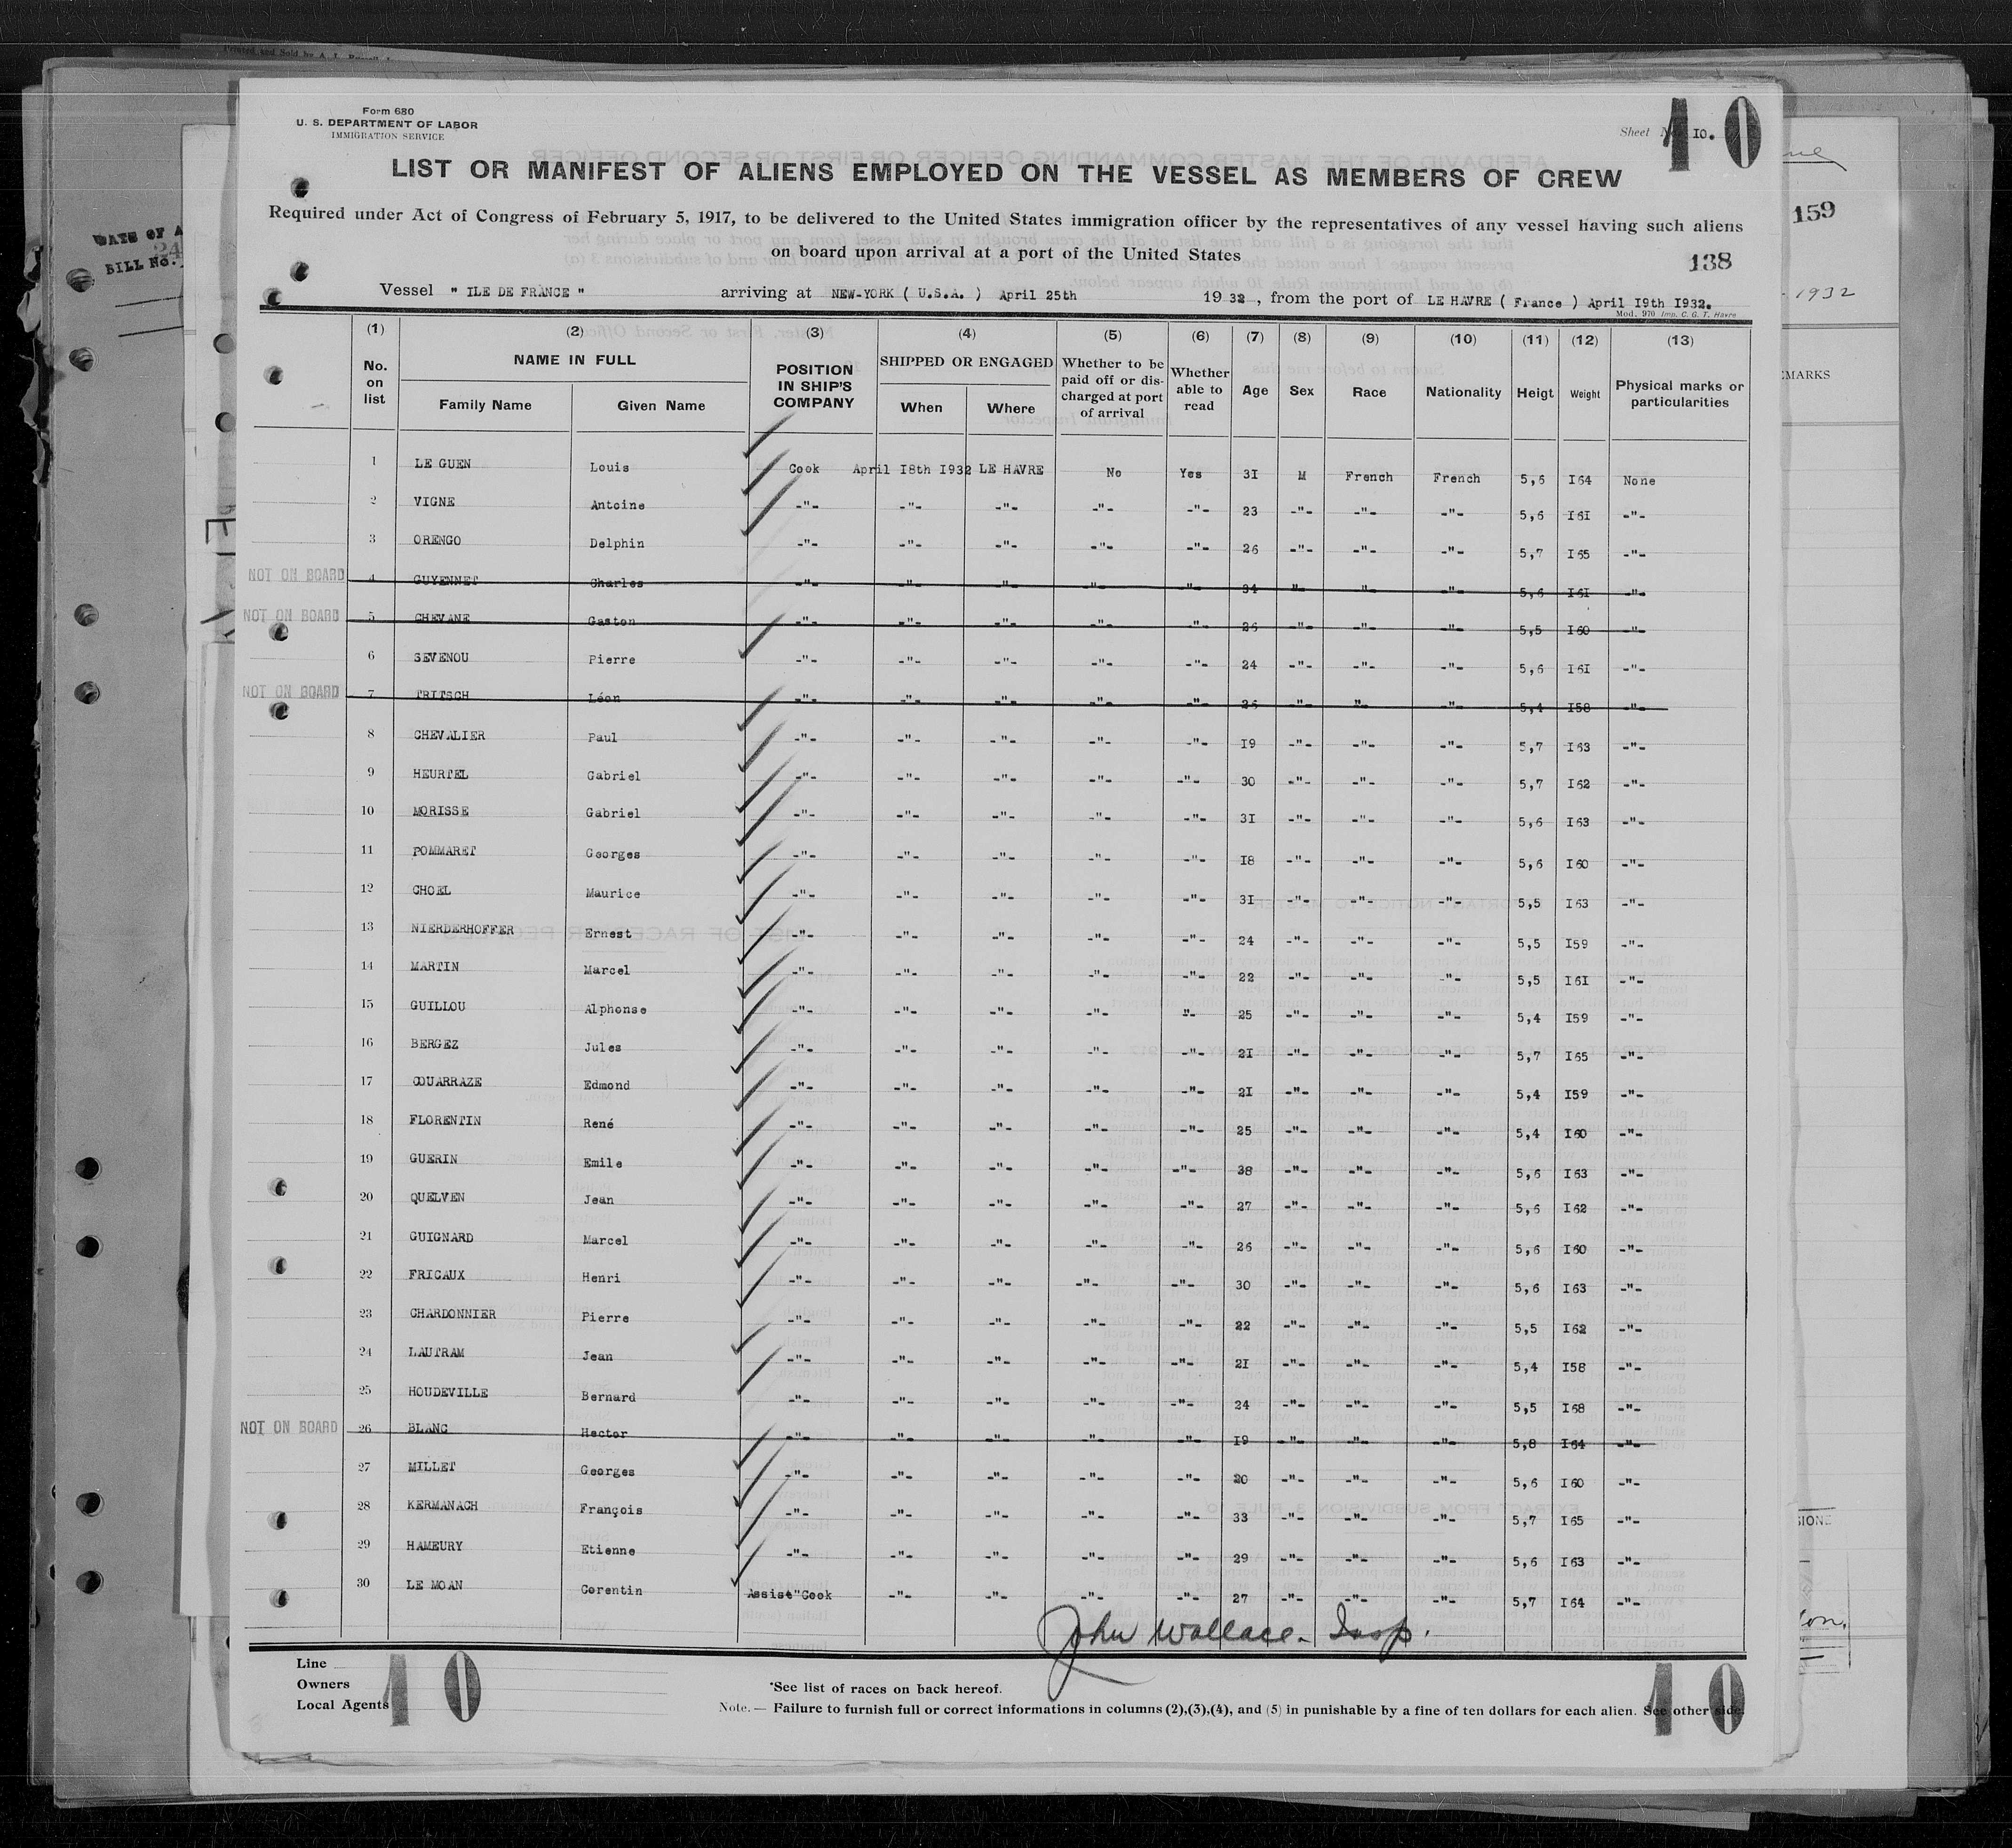 Form 680
U. S. DEPARTMENT OF LABOR
IMMIGRATION SERVICE
Sheet No. 10.
10
LIST OR MANIFEST OF ALIENS EMPLOYED ON THE VESSEL AS MEMBERS OF CREW
Required under Act of Congress of February 5, 1917, to be delivered to the United States immigration officer by the representatives of any vessel having such aliens
on board upon arrival at a port of the United States
138
159
BILL No.
1932
Vessel " ILE DE FRANCE " arriving at NEW-YORK ( U.S.A. ) April 25th 1932 , from the port of LE HAVRE ( France ) April I9th I932.
Mod. 970 Imp. C. G. T. Havre
(1) (2) (3) (4) (5) (6) (7) (8) (9) (10) (11) (12) (13)
No. on list NAME IN FULL Family Name Given Name POSITION IN SHIP'S COMPANY SHIPPED OR ENGAGED When Where Whether to be paid off or discharged at port of arrival Whether able to read Age Sex Race Nationality Heigt Weight Physical marks or particularities
1 LE GUEN Louis Cook April I8th I932 LE HAVRE No Yes 3I M French French 5,6 I64 None
2 VIGNE Antoine -"- -"- -"- -"- -"- 23 -"- -"- -"- 5,6 I6I -"-
3 ORENGO Delphin -"- -"- -"- -"- -"- 26 -"- -"- -"- 5,7 I65 -"-
NOT ON BOARD 4 GUYENNET Charles -"- -"- -"- -"- -"- 34 -"- -"- -"- 5,6 I6I -"-
NOT ON BOARD 5 CHEVANE Gaston -"- -"- -"- -"- -"- 26 -"- -"- -"- 5,5 I60 -"-
6 SEVENOU Pierre -"- -"- -"- -"- -"- 24 -"- -"- -"- 5,6 I6I -"-
NOT ON BOARD 7 TRITSCH Léon -"- -"- -"- -"- -"- 26 -"- -"- -"- 5,4 I58 -"-
8 CHEVALIER Paul -"- -"- -"- -"- -"- I9 -"- -"- -"- 5,7 I63 -"-
9 HEURTEL Gabriel -"- -"- -"- -"- -"- 30 -"- -"- -"- 5,7 I62 -"-
10 MORISSE Gabriel -"- -"- -"- -"- -"- 3I -"- -"- -"- 5,6 I63 -"-
11 POMMARET Georges -"- -"- -"- -"- -"- I8 -"- -"- -"- 5,6 I60 -"-
12 CHOEL Maurice -"- -"- -"- -"- -"- 3I -"- -"- -"- 5,5 I63 -"-
13 NIERDERHOFFER Ernest -"- -"- -"- -"- -"- 24 -"- -"- -"- 5,5 I59 -"-
14 MARTIN Marcel -"- -"- -"- -"- -"- 22 -"- -"- -"- 5,5 I6I -"-
15 GUILLOU Alphonse -"- -"- -"- -"- "- 25 -"- -"- -"- 5,4 I59 -"-
16 BERGEZ Jules -"- -"- -"- -"- -"- 2I -"- -"- -"- 5,7 I65 -"-
17 COUARRAZE Edmond -"- -"- -"- -"- -"- 2I -"- -"- -"- 5,4 I59 -"-
18 FLORENTIN René -"- -"- -"- -"- -"- 25 -"- -"- -"- 5,4 I60 -"-
19 GUERIN Emile -"- -"- -"- -"- -"- 38 -"- -"- -"- 5,6 I63 -"-
20 QUELVEN Jean -"- -"- -"- -"- -"- 27 -"- -"- -"- 5,6 I62 -"-
21 GUIGNARD Marcel -"- -"- -"- -"- -"- 26 -"- -"- -"- 5,6 I60 -"-
22 FRICAUX Henri -"- -"- -"- -"- -"- 30 -"- -"- -"- 5,6 I63 -"-
23 CHARDONNIER Pierre -"- -"- -"- -"- -"- 22 -"- -"- -"- 5,5 I62 -"-
24 LAUTRAM Jean -"- -"- -"- -"- -"- 2I -"- -"- -"- 5,4 I58 -"-
25 HOUDEVILLE Bernard -"- -"- -"- -"- -"- 24 -"- -"- -"- 5,5 I68 -"-
NOT ON BOARD 26 BLANC Hector -"- -"- -"- -"- -"- I9 -"- -"- -"- 5,8 I64 -"-
27 MILLET Georges -"- -"- -"- -"- -"- 20 -"- -"- -"- 5,6 I60 -"-
28 KERMANACH François -"- -"- -"- -"- -"- 33 -"- -"- -"- 5,7 I65 -"-
29 HAMEURY Etienne -"- -"- -"- -"- -"- 29 -"- -"- -"- 5,6 I63 -"-
30 LE MOAN Corentin Assist"Cook -"- -"- -"- -"- 27 -"- -"- -"- 5,7 I64 -"-
John Wallace - Insp.
Line
Owners
Local Agents
10
*See list of races on back hereof.
Note. — Failure to furnish full or correct informations in columns (2),(3),(4), and (5) in punishable by a fine of ten dollars for each alien. See other side.
10